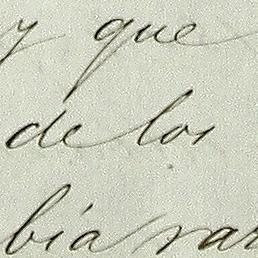 y que
de los
bia